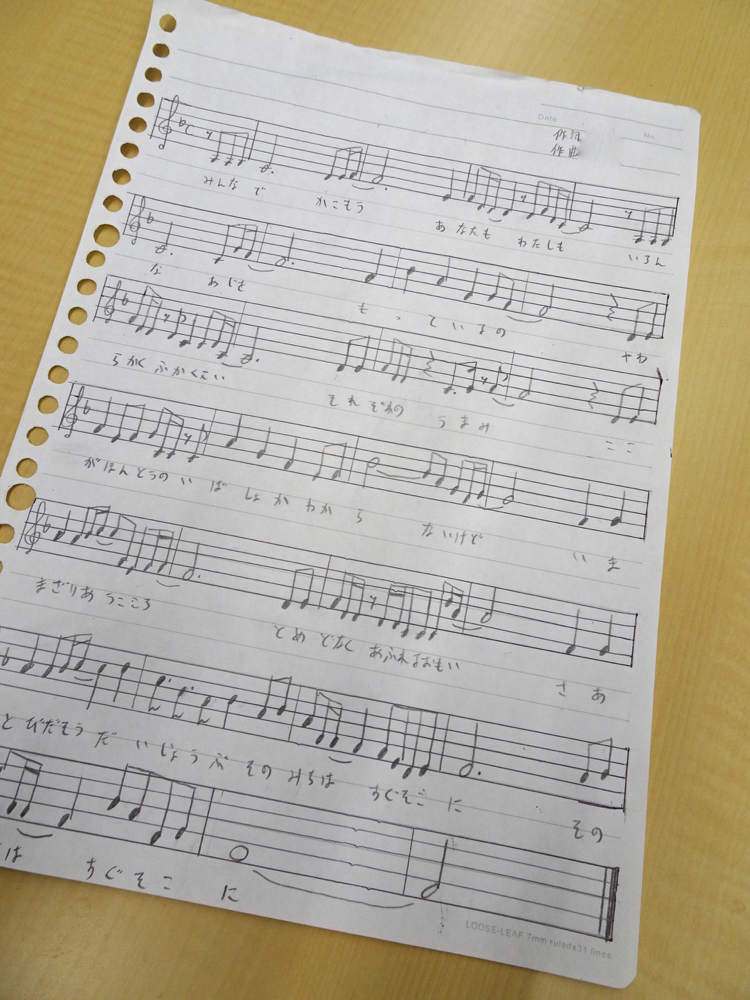 Date
No.
作詞
作曲
みんなで かこもう あなたも わたしも いろん
な あじも もっているの やわ
らかく ふかくこい それぞれの うまみ ここ
がほんとうの いばしょか わからないけど いま
まざりあうこころ とめどなく あふれるおもい さあ
とびだそう だいじょうぶ そのみちは すぐそこに その
は すぐそこに
LOOSE-LEAF 7mm ruled×31 lines